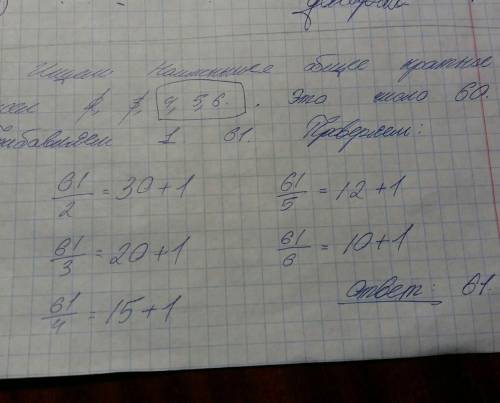 Ищем Наименьшее общее кратное
2, 3, 4, 5, 6. Это число 60.
1 61. Проверяем:
61/2 = 30 + 1
61/3 = 20 + 1
61/4 = 15 + 1
61/5 = 12 + 1
61/6 = 10 + 1
Ответ: 61.